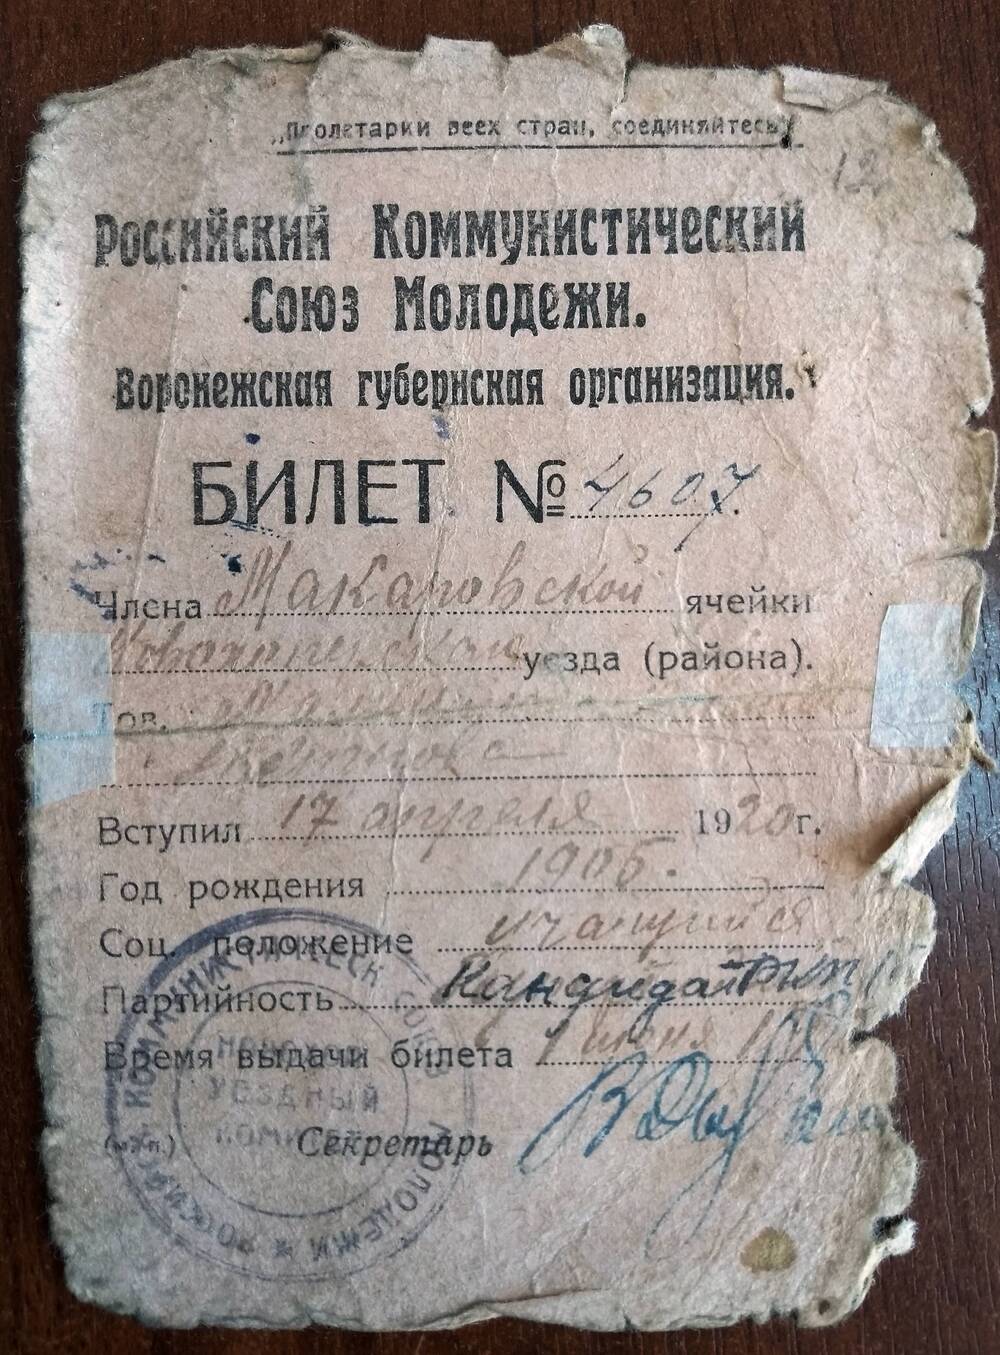 „Пролетарки всех стран, соединяйтесь"
12
Российский Коммунистический
Союз Молодежи.
Воронежская губернская организация.
БИЛЕТ № 4607.
Члена Макаровской ячейки
уезда (района).
Тов.
Вступил 17 апреля 1920 г.
Год рождения 1905.
Соц. положение учащийся
Партийность Кандидат РКП
Время выдачи билета 1 июня
(м. п.) Секретарь
РОССИЙСК. КОММУНИСТИЧЕСК. СОЮЗ МОЛОДЕЖИ *
УЕЗДНЫЙ
КОМИТЕТ